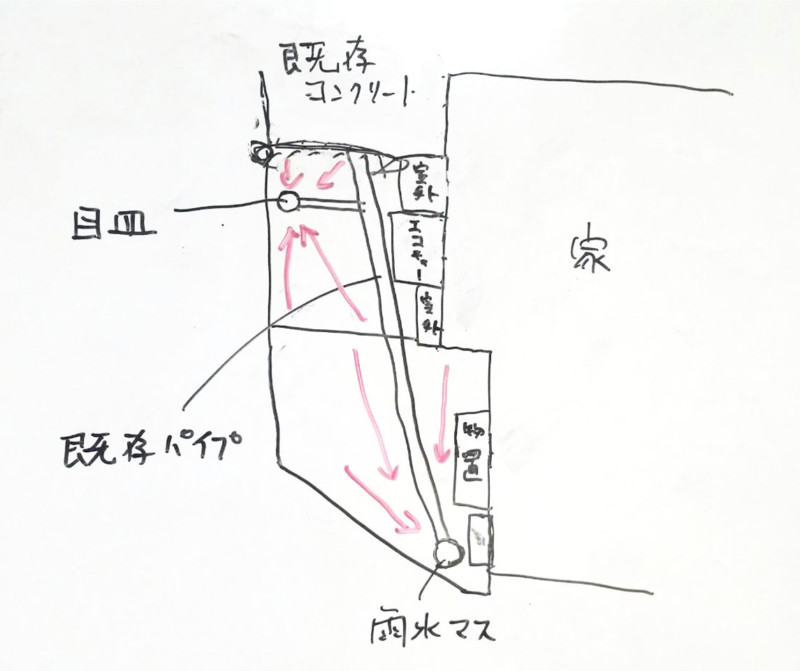 既存
コンクリート
室外
目皿
エコキュー
家
室外
既存パイプ
物置
雨水マス